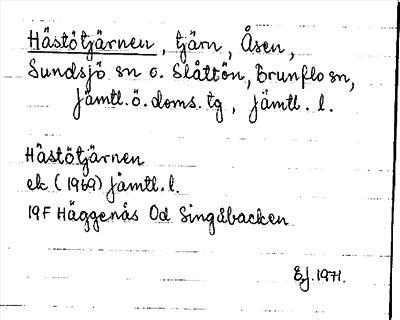 Hästötjärnen, tjärn, Åsen,
Sundsjö sn o. Slåttön, Brunflo sn,
Jämtl. ö. doms. tg, Jämtl. l.
Hästötjärnen
ek (1969) Jämtl. l.
19F Häggenås 0d Singsbacken
EJ. 1971.